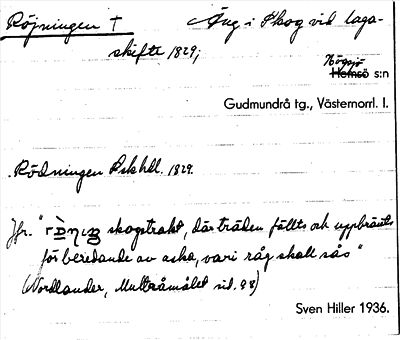 Röjningen † Äng i Skog vid laga-
skifte 1829;
Högsjö
Hemsö s:n
Gudmundrå tg., Västernorrl. l.
Rödningen Askhdl. 1829.
Jfr. " skogstrakt, där träden fällts och uppbränts
för beredande av aska, vari råg skall sås"
(Nordlander, Multråmålet sid. 98)
Sven Hiller 1936.